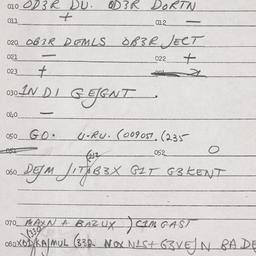 010 OD3R DU. OD3R DORTN
011 + 012 —
020 OB3R DEMLS OB3R JECT
021 — 022 +
023 +
030 IN DI GEJGNT.
040 —
050 GO. U.RU. (009051. (235
052 O
060 DEJM B3X GIT G3KENT
070 MAXN + BAZUX ) GAST
080 MUL (330. NOX NIS+ G3VEJN BADE